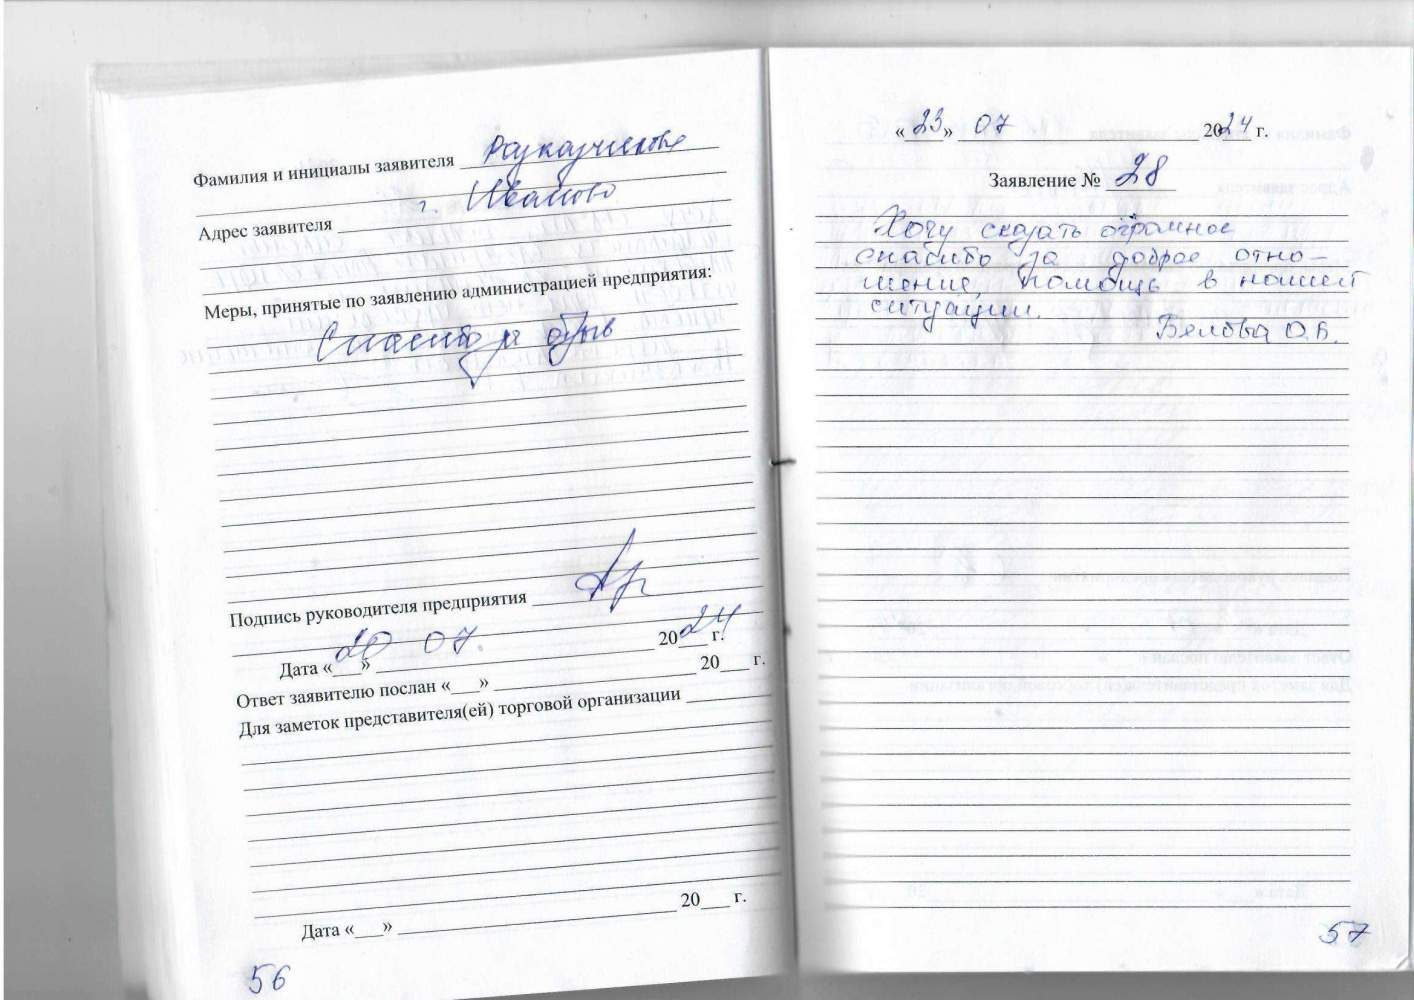 Фамилия и инициалы заявителя
г. Иваново
Адрес заявителя
Меры, принятые по заявлению администрацией предприятия:
Спасибо за отзыв
Подпись руководителя предприятия
Дата «20» 07. 2024 г.
Ответ заявителю послан «___» 20___ г.
Для заметок представителя(ей) торговой организации
Дата «___» 20___ г.
56
«23» 07 2024 г.
Заявление № 28
Хочу сказать огромное
спасибо за доброе отно-
шение, помощь в нашей
ситуации.
Белова О.В.
57